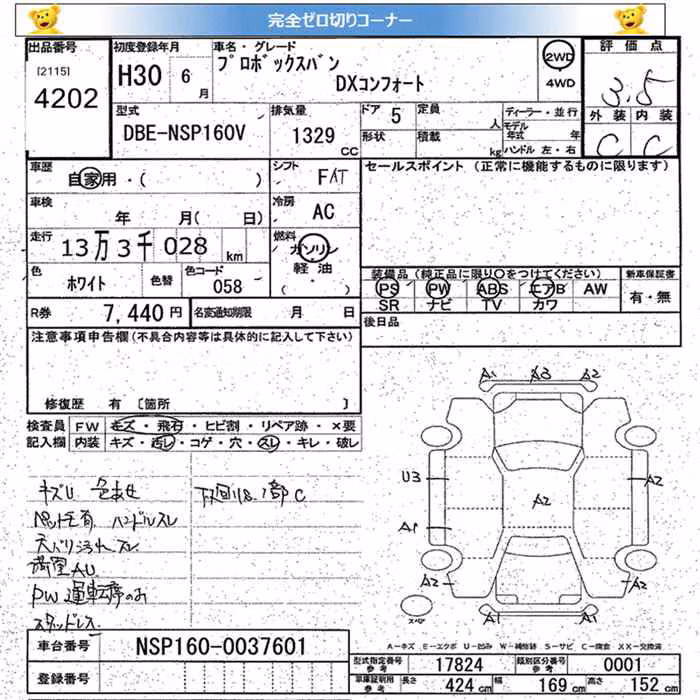 完全ゼロ切りコーナー
出品番号
[2115]
4202
初度登録年月
H30 6月
車名・グレード
プロボックスバン
DXコンフォート
2WD
4WD
評価点
3.5
外装 内装
C C
型式
DBE-NSP160V
排気量
1329 CC
ドア 5
定員 人
形状
積載 kg
ディーラー・並行
モデル年式 年
ハンドル 左・右
車歴
自家用・( )
シフト
FAT
セールスポイント (正常に機能するものに限ります)
車検
年 月( 日)
冷房
AC
走行
13万3千028km
燃料
ガソリン
軽油
( ・ )
色
ホワイト
色替
色コード
058
装備品(純正品に限り○をつけてください)
PS PW ABS エアB AW
SR ナビ TV カワ
新車保証書
有・無
R券 7,440円
名変通知期限 月 日
後日品
注意事項申告欄(不具合内容等は具体的に記入して下さい)
修復歴 有 [箇所 ]
検査員記入欄
FW キズ・飛石・ヒビ割・リペア跡・×要
内装 キズ・汚レ・コゲ・穴・スレ・キレ・破レ
キズU 色あせ
下回りS.1部C
ペット毛有 ハンドルスレ
天バリ汚れスレ
荷室AU
PW運転席のみ
スタッドレス
A1 A3 A2
U3 A2
A2
A1
A2 A2
A1 A1
スペア
A-キズ E-エクボ U-凹み W-補修跡 S-サビ C-腐食 XX-交換済
車台番号
NSP160-0037601
登録番号
型式指定番号 参考 17824
類別区分番号 参考 0001
車庫証明用 参考 長さ 424 cm 幅 169 cm 高さ 152 cm